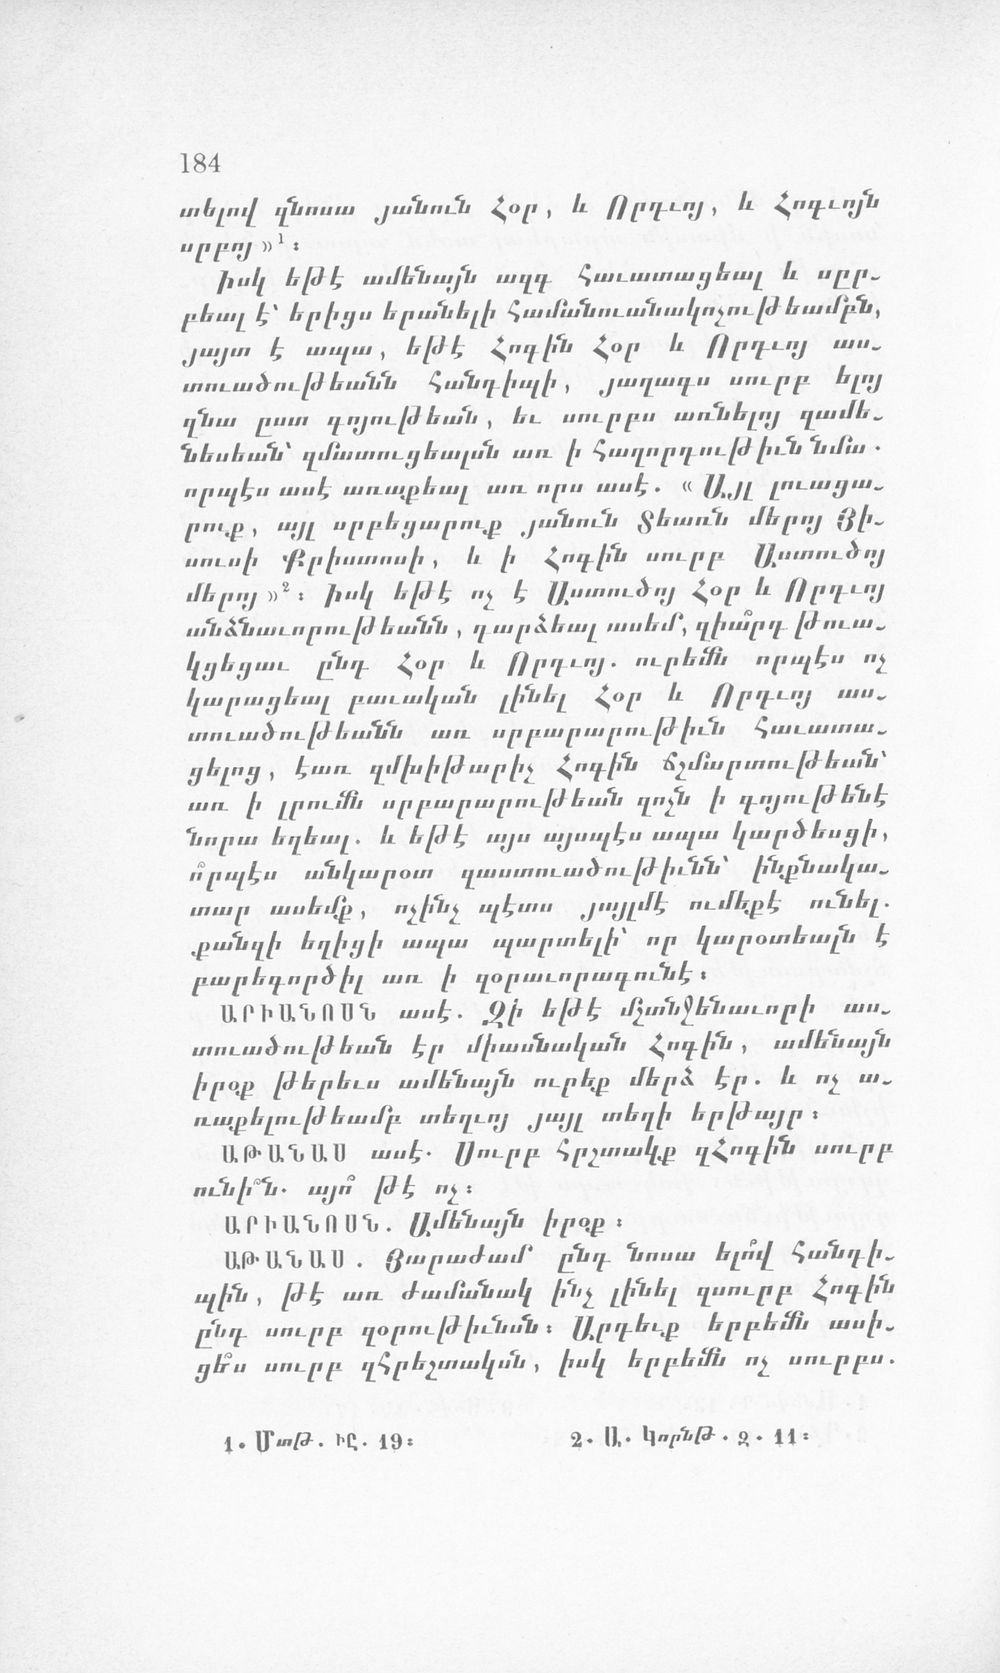 184
տելով զնոսա յանուն Հօր, և Որդւոյ, և Հոգւոյն
սրբոյ»¹։
Իսկ եթէ ամենայն ազգ հաւատացեալ և սըր֊
բեալ է՝ երիցս երանելի համանուանակոչութեամբն,
յայտ է ապա, եթէ Հոգին Հօր և Որդւոյ աս֊
տուածութեանն հանդիպի, յաղագս սուրբ ելոյ
զնա ըստ գոյութեան, եւ սուրբս առնելոյ զամե֊
նեսեան՝ զմատուցեալսն առ ի հաղորդութիւն նմա.
որպէս ասէ առաքեալ առ որս ասէ. «Այլ լուացա֊
րուք, այլ սրբեցարուք յանուն Տեառն մերոյ Յի֊
սուսի Քրիստոսի, և ի Հոգին սուրբ Աստուծոյ
մերոյ»²։ Իսկ եթէ ոչ է Աստուծոյ Հօր և Որդւոյ
անձնաւորութեանն, դարձեալ ասեմ, զիա՞րդ թուա֊
կցեցաւ ընդ Հօր և Որդւոյ. ուրեմն որպէս ոչ
կարացեալ բաւական լինել Հօր և Որդւոյ աս֊
տուածութեանն առ սրբարարութիւն հաւատա֊
ցելոց, էառ զմխիթարիչ Հոգին ճշմարտութեան՝
առ ի լրումն սրբարարութեան զոչն ի գոյութենէ
նորա եղեալ. և եթէ այս այսպէս ապա կարծեսցի,
ո՞րպէս անկարօտ զաստուածութիւնն՝ ինքնակա֊
տար ասեմք, ոչինչ պէտս յայլմէ ումեքէ ունել.
քանզի եղիցի ապա պարտելի՝ որ կարօտեալն է
բարեգործիլ առ ի զօրաւորագունէ։
ԱՐԻԱՆՈՍՆ ասէ. Զի եթէ մշտնջենաւորի աս֊
տուածութեան էր միասնական Հոգին, ամենայն
իրօք թերեւս ամենայն ուրեք մերձ էր. և ոչ ա֊
ռաքելութեամբ տեղւոյ յայլ տեղի երթայր։
ԱԹԱՆԱՍ ասէ. Սուրբ հրշտակք զՀոգին սուրբ
ունի՞ն. այո՞ թէ ոչ։
ԱՐԻԱՆՈՍՆ. Ամենայն իրօք։
ԱԹԱՆԱՍ. Յարաժամ ընդ նոսա ելո՞վ հանդի֊
պին, թէ առ ժամանակ ինչ լինել զսուրբ Հոգին
ընդ սուրբ զօրութիւնսն։ Արդեւք երբեմն ասի֊
ցե՞ս սուրբ զհրեշտակսն, իսկ երբեմն ոչ սուրբս.
1. Մատթ. ԻԸ. 19։
2. Ա. Կորնթ. Զ. 11։